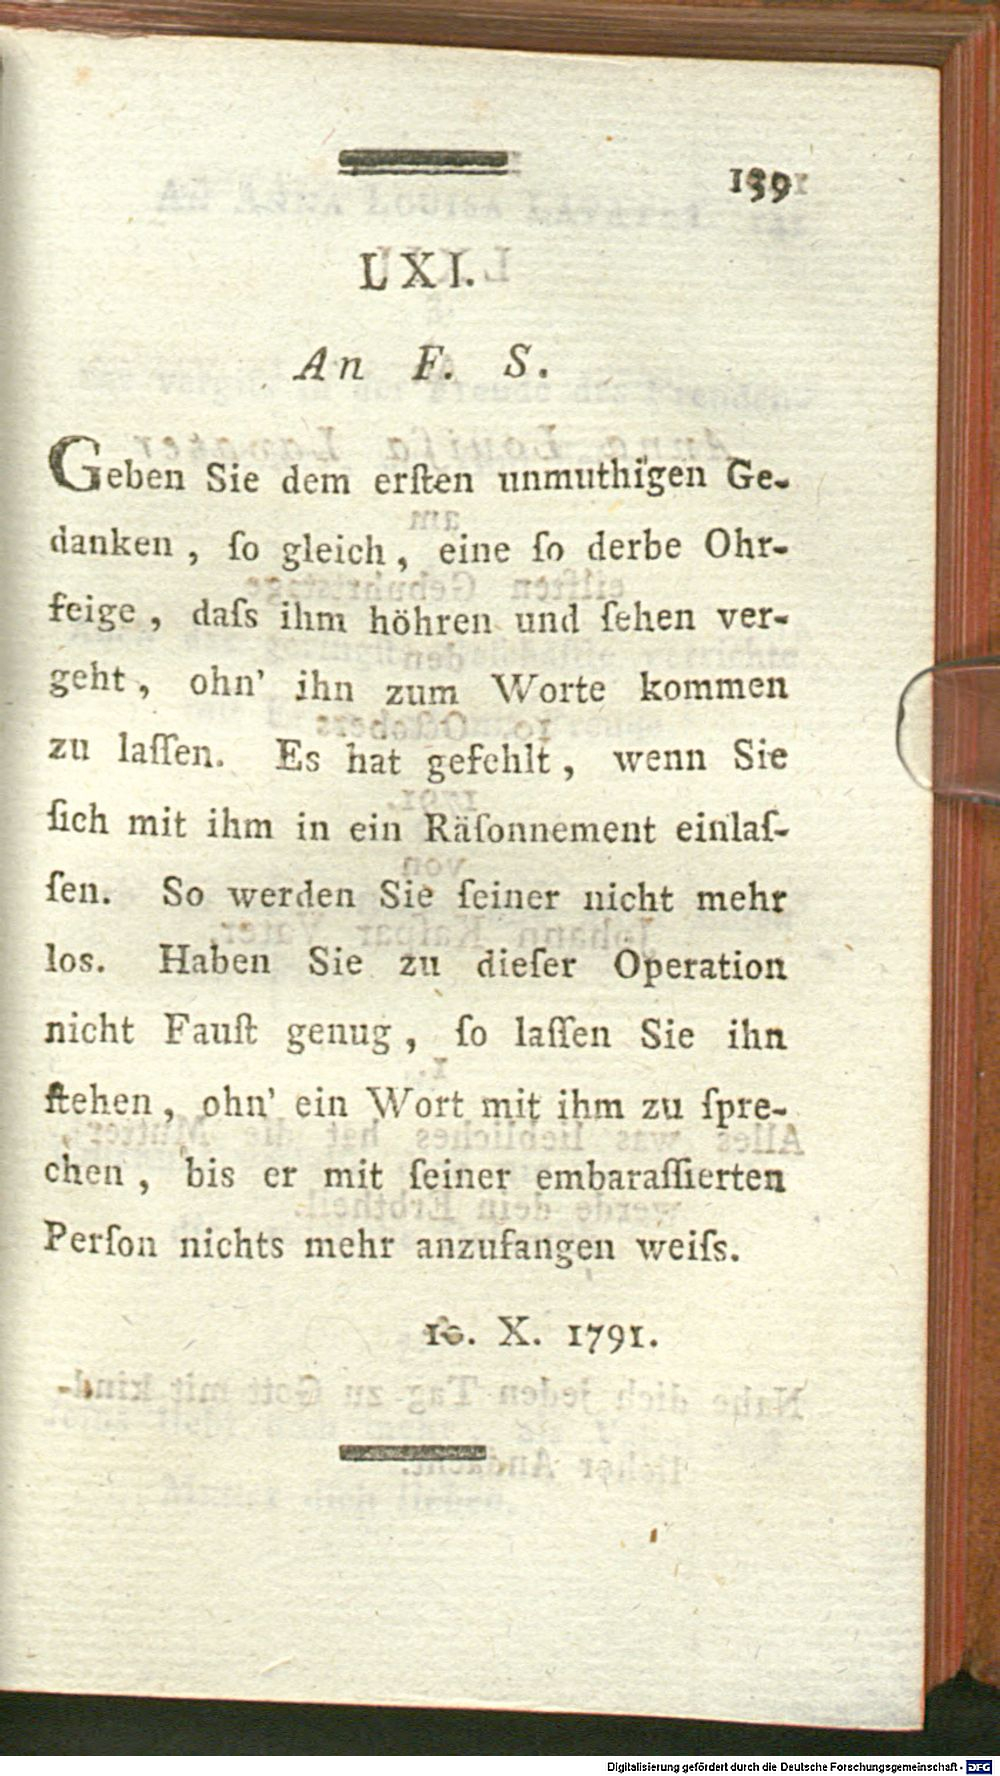 139
LXI.
An F. S.
Geben Sie dem erſten unmuthigen Ge-
danken, ſo gleich, eine ſo derbe Ohr-
feige, daſs ihm höhren und ſehen ver-
geht, ohn' ihn zum Worte kommen
zu laſſen. Es hat gefehlt, wenn Sie
ſich mit ihm in ein Räſonnement einlaſ-
ſen. So werden Sie ſeiner nicht mehr
los. Haben Sie zu dieſer Operation
nicht Fauſt genug, ſo laſſen Sie ihn
ſtehen, ohn' ein Wort mit ihm zu ſpre-
chen, bis er mit ſeiner embaraſſierten
Perſon nichts mehr anzufangen weiſs.
10. X. 1791.
Digitalisierung gefördert durch die Deutsche Forschungsgemeinschaft - DFG